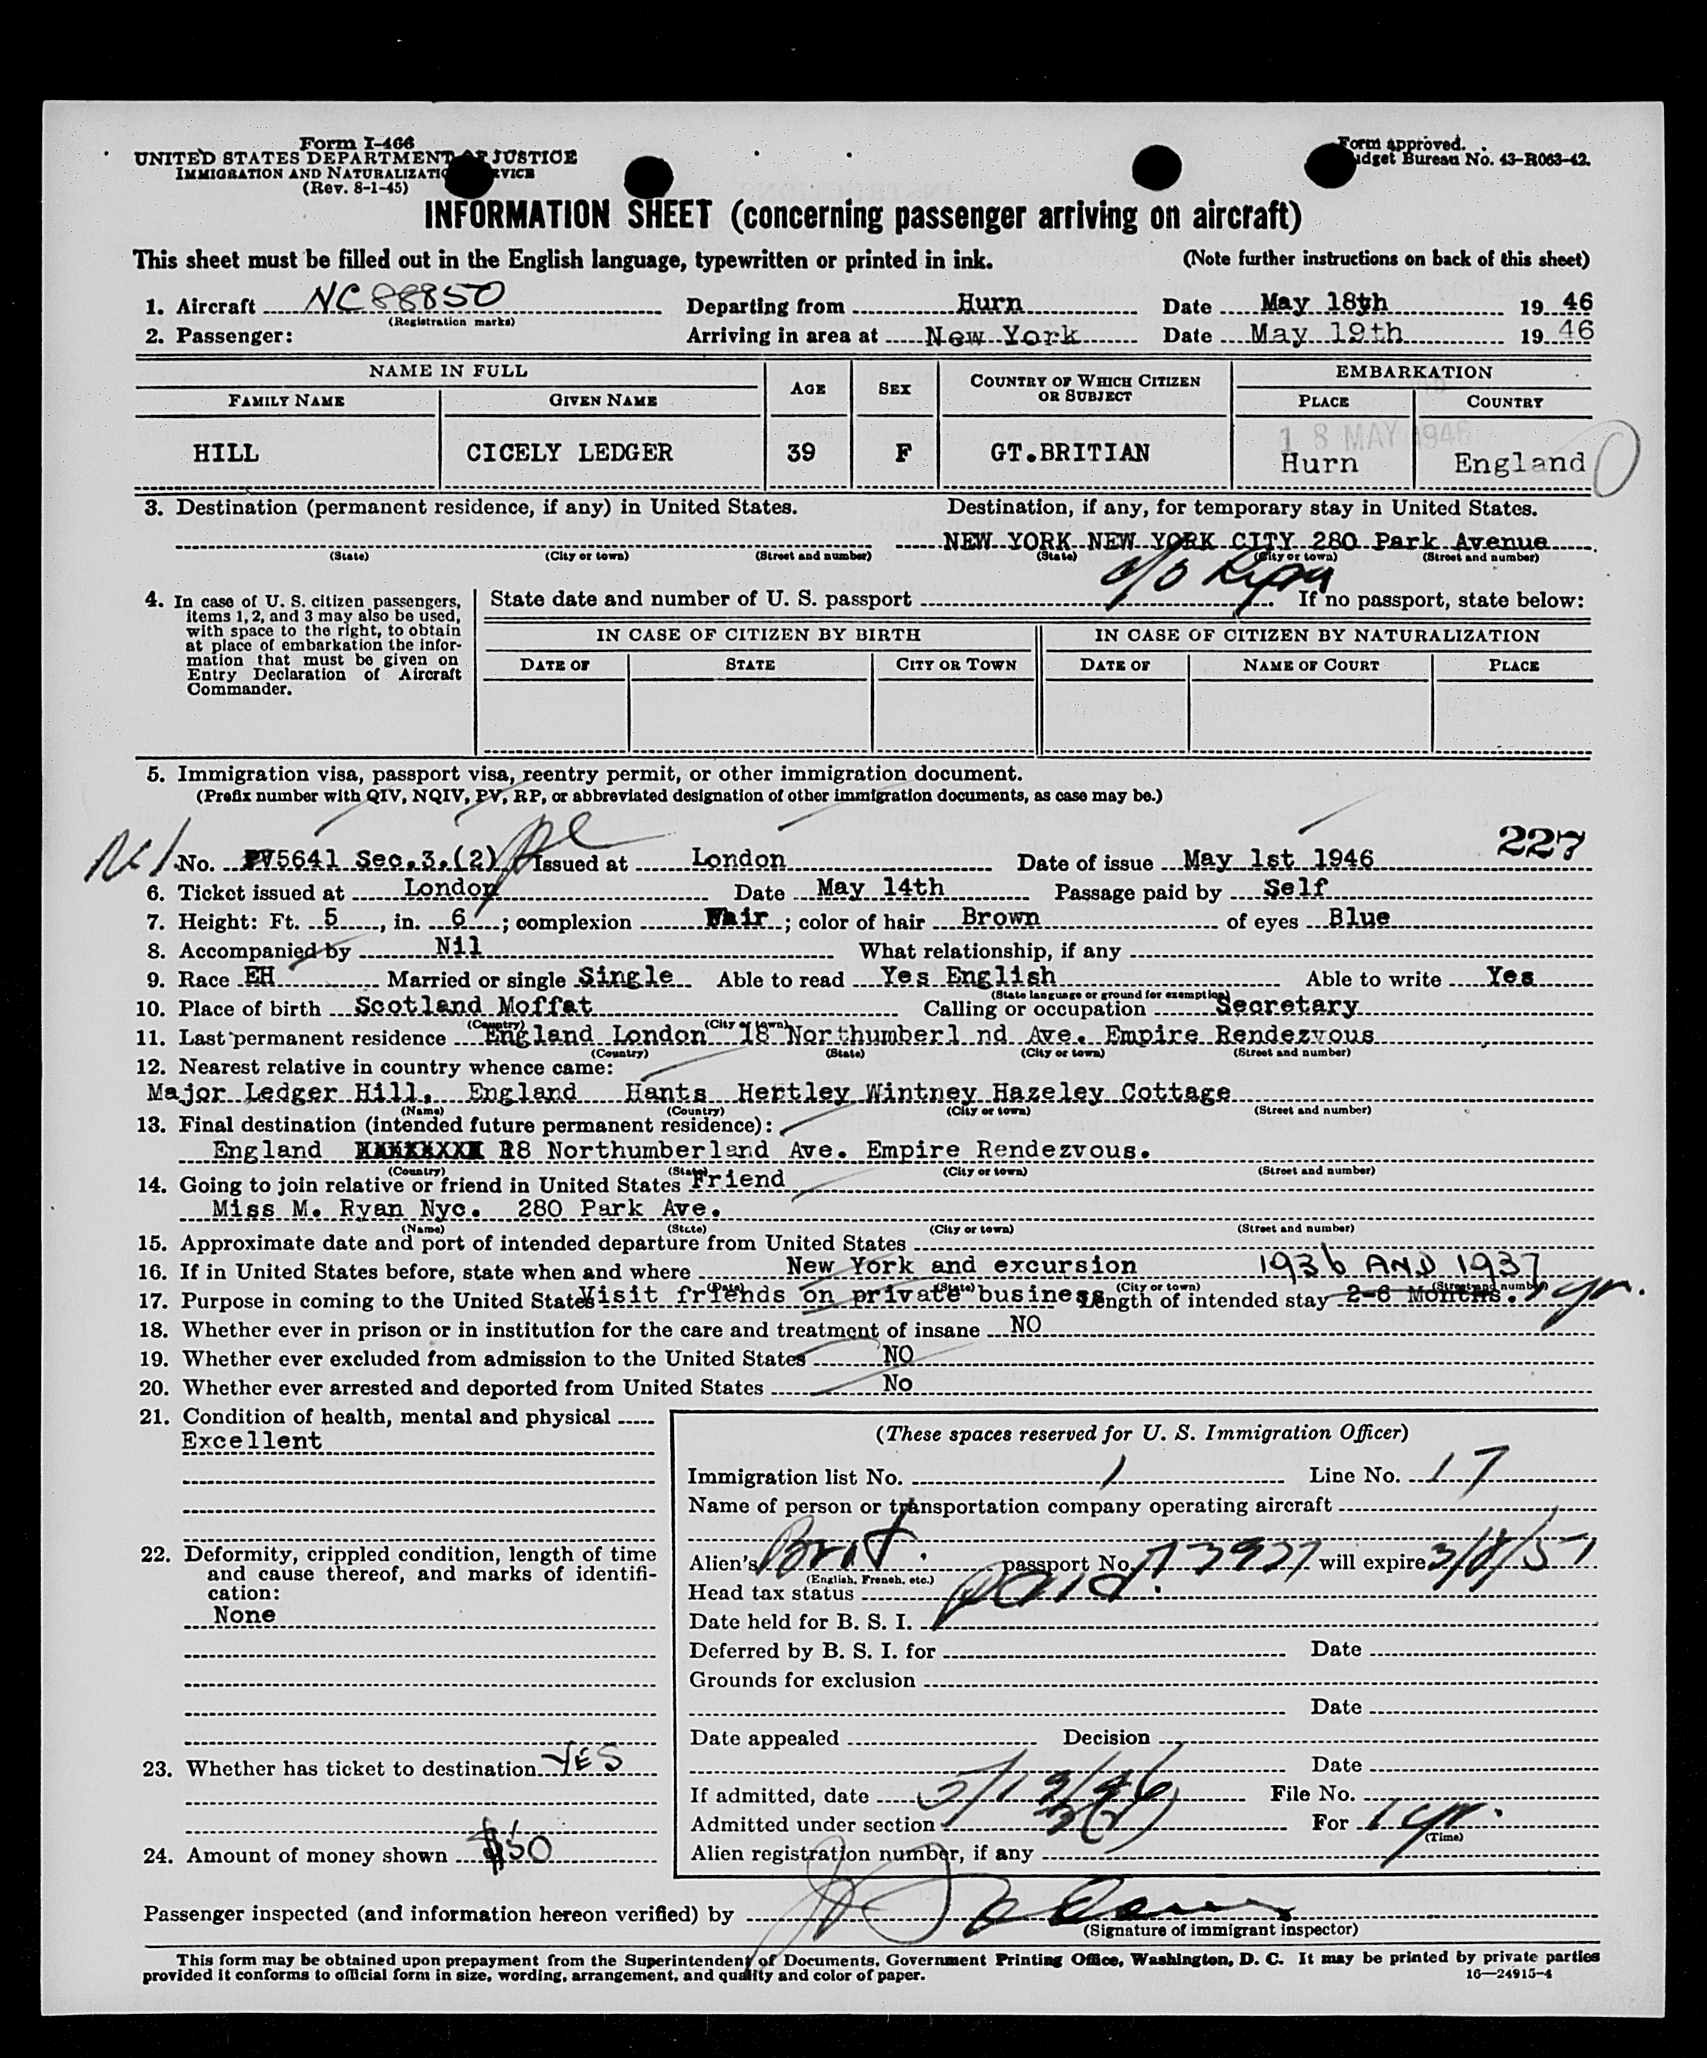 Form I-466
UNITED STATES DEPARTMENT OF JUSTICE
IMMIGRATION AND NATURALIZATION SERVICE
(Rev. 8-1-45)
Form approved.
Budget Bureau No. 43-R063-42.
INFORMATION SHEET (concerning passenger arriving on aircraft)
This sheet must be filled out in the English language, typewritten or printed in ink. (Note further instructions on back of this sheet)
1. Aircraft NC 88850 Departing from Hurn Date May 18th 19 46
(Registration marks)
2. Passenger: Arriving in area at New York Date May 19th 19 46
NAME IN FULL AGE SEX COUNTRY OF WHICH CITIZEN OR SUBJECT EMBARKATION
FAMILY NAME GIVEN NAME PLACE COUNTRY
18 MAY 1946
HILL CICELY LEDGER 39 F GT.BRITIAN Hurn England
3. Destination (permanent residence, if any) in United States. Destination, if any, for temporary stay in United States.
NEW YORK NEW YORK CITY 280 Park Avenue
(State) (City or town) (Street and number) (State) (City or town) (Street and number)
c/o Ryan
4. In case of U. S. citizen passengers, items 1, 2, and 3 may also be used, with space to the right, to obtain at place of embarkation the information that must be given on Entry Declaration of Aircraft Commander.
State date and number of U. S. passport If no passport, state below:
IN CASE OF CITIZEN BY BIRTH IN CASE OF CITIZEN BY NATURALIZATION
DATE OF STATE CITY OR TOWN DATE OF NAME OF COURT PLACE
5. Immigration visa, passport visa, reentry permit, or other immigration document.
(Prefix number with QIV, NQIV, PV, RP, or abbreviated designation of other immigration documents, as case may be.)
227
No. PV5641 Sec.3.(2) Issued at London Date of issue May 1st 1946
6. Ticket issued at London Date May 14th Passage paid by Self
7. Height: Ft. 5, in. 6; complexion Fair; color of hair Brown of eyes Blue
8. Accompanied by Nil What relationship, if any
9. Race EH Married or single Single Able to read Yes English Able to write Yes
(State language or ground for exemption)
10. Place of birth Scotland Moffat Calling or occupation Secretary
(Country) (City or town)
11. Last permanent residence England London 18 Northumberl nd Ave. Empire Rendezvous
(Country) (State) (City or town) (Street and number)
12. Nearest relative in country whence came:
Major Ledger Hill. England Hants Hertley Wintney Hazeley Cottage
(Name) (Country) (City or town) (Street and number)
13. Final destination (intended future permanent residence):
England 18 Northumberland Ave. Empire Rendezvous.
(Country) (State) (City or town) (Street and number)
14. Going to join relative or friend in United States Friend
Miss M. Ryan Nyc. 280 Park Ave.
(Name) (State) (City or town) (Street and number)
15. Approximate date and port of intended departure from United States
16. If in United States before, state when and where New York and excursion 1936 AND 1937
(Date) (State) (City or town) (Street and number)
17. Purpose in coming to the United States Visit friends on private business Length of intended stay 2-6 Months. 1 yr.
18. Whether ever in prison or in institution for the care and treatment of insane NO
19. Whether ever excluded from admission to the United States NO
20. Whether ever arrested and deported from United States No
21. Condition of health, mental and physical
Excellent
22. Deformity, crippled condition, length of time and cause thereof, and marks of identification:
None
23. Whether has ticket to destination YES
24. Amount of money shown $50
(These spaces reserved for U. S. Immigration Officer)
Immigration list No. 1 Line No. 17
Name of person or transportation company operating aircraft
Alien's Brit. passport No. 173927 will expire 3/8/51
(English, French, etc.)
Head tax status paid.
Date held for B. S. I.
Deferred by B. S. I. for Date
Grounds for exclusion
Date
Date appealed Decision
Date
If admitted, date 5/19/46 File No.
Admitted under section 3(2) For 1 yr.
(Time)
Alien registration number, if any
Passenger inspected (and information hereon verified) by
(Signature of immigrant inspector)
This form may be obtained upon prepayment from the Superintendent of Documents, Government Printing Office, Washington, D. C. It may be printed by private parties
provided it conforms to official form in size, wording, arrangement, and quality and color of paper. 16—24915-4